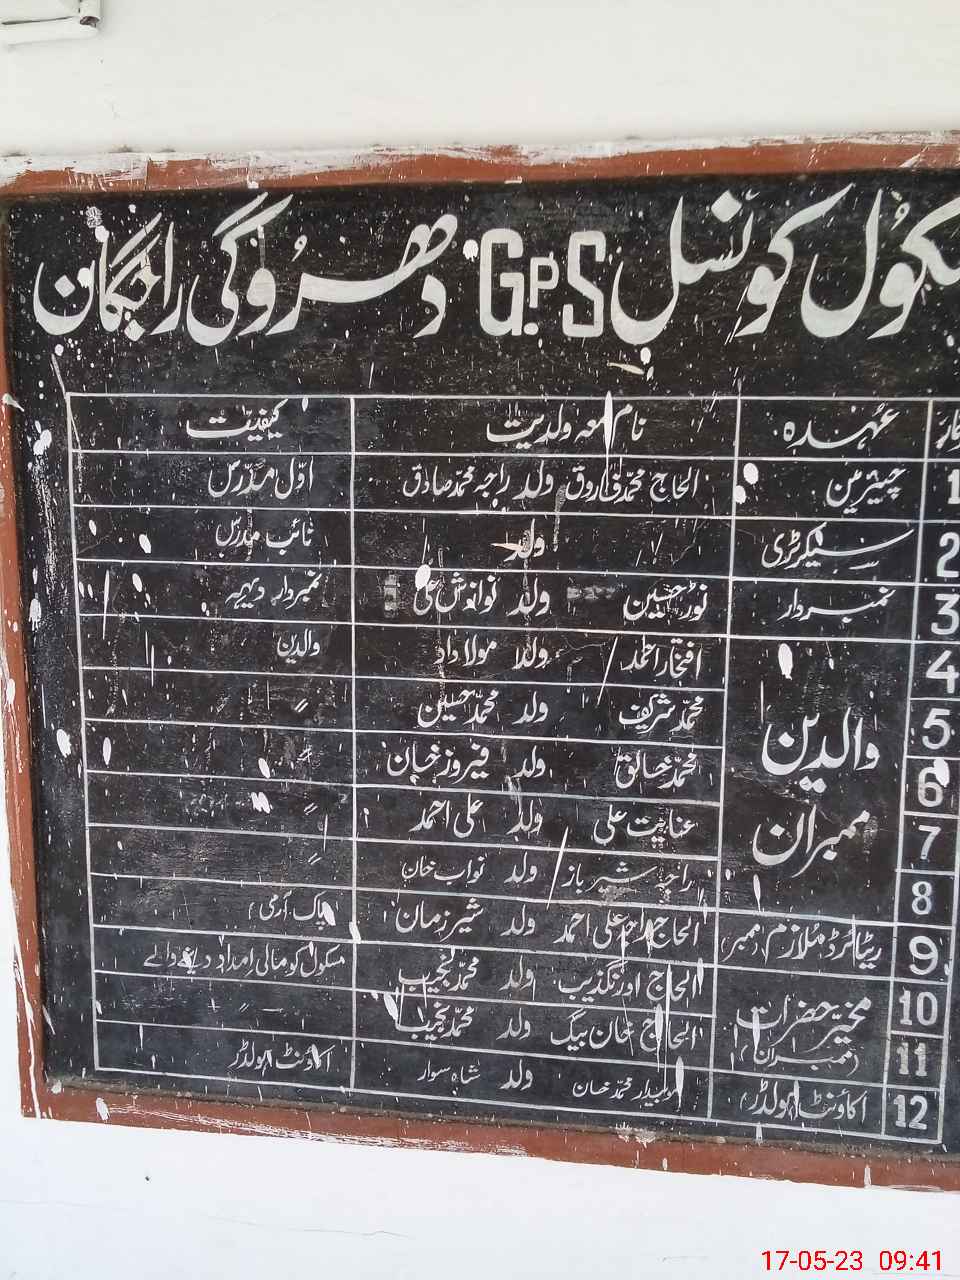 سکول کونسل GPS دھروگی راجگان
عُہدہ نام معہ ولدیت کیفیّت
1 چیئرمین الحاج محمّد فاروق ولد راجہ محمّد صادق اوّل مدرّس
2 سیکرٹری ولد نائب مدرّس
3 نمبردار نور حسین ولد نوازش علی نمبردار دیہہ
4 افتخار احمد ولد مولا داد والدین
5 محمّد شریف ولد محمّد حسین 〃
6 والدین محمّد خالق ولد فیروز خان 〃
7 ممبران عنایت علی ولد علی احمد 〃
8 راجہ شیر باز ولد نواب خان 〃
9 ریٹائرڈ ملازم (ممبر) الحاج راجہ علی احمد ولد شیر زمان (پاک آرمی)
10 مخیّر حضرات الحاج اورنگزیب ولد محمّد نجیب سکول کو مالی امداد دینے والے
11 (ممبران) الحاج خان بیگ ولد محمّد نجیب
12 اکاؤنٹ ہولڈر صوبیدار محمّد خان ولد شاہ سوار اکاؤنٹ ہولڈر
17-05-23 09:41